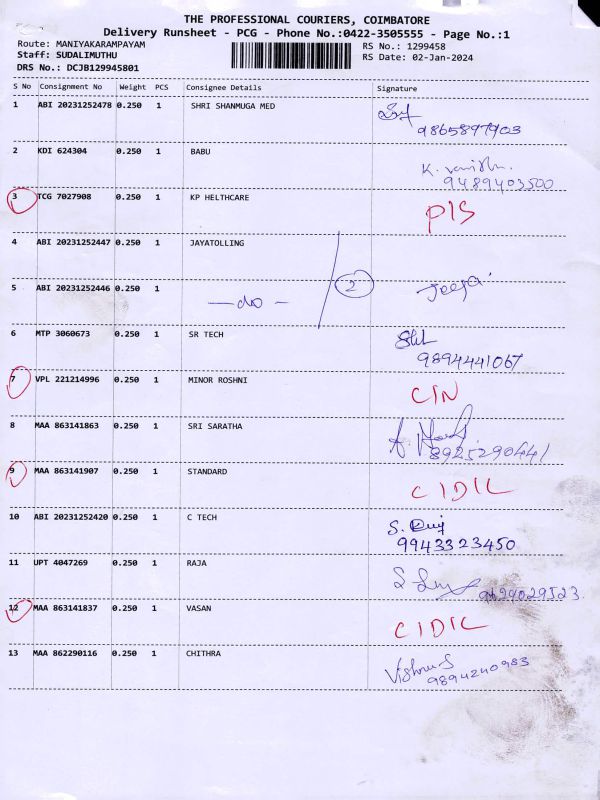 THE PROFESSIONAL COURIERS, COIMBATORE
Delivery Runsheet - PCG - Phone No.:0422-3505555 - Page No.:1
Route: MANIYAKARAMPAYAM RS No.: 1299458
Staff: SUDALIMUTHU RS Date: 02-Jan-2024
DRS No.: DCJB129945801
S No Consignment No Weight PCS Consignee Details Signature
1 ABI 20231252478 0.250 1 SHRI SHANMUGA MED
9865897903
2 KDI 624304 0.250 1 BABU
K.
9489403500
3 TCG 7027908 0.250 1 KP HELTHCARE P/S
4 ABI 20231252447 0.250 1 JAYATOLLING
5 ABI 20231252446 0.250 1 —do- 2 Jeeja
6 MTP 3060673 0.250 1 SR TECH
9894441067
7 VPL 221214996 0.250 1 MINOR ROSHNI C/N
8 MAA 863141863 0.250 1 SRI SARATHA
8925290441
9 MAA 863141907 0.250 1 STANDARD C/D/L
10 ABI 20231252420 0.250 1 C TECH S.
9943323450
11 UPT 4047269 0.250 1 RAJA
12 MAA 863141837 0.250 1 VASAN C/D/L
13 MAA 862290116 0.250 1 CHITHRA Vishnu S
9894240983